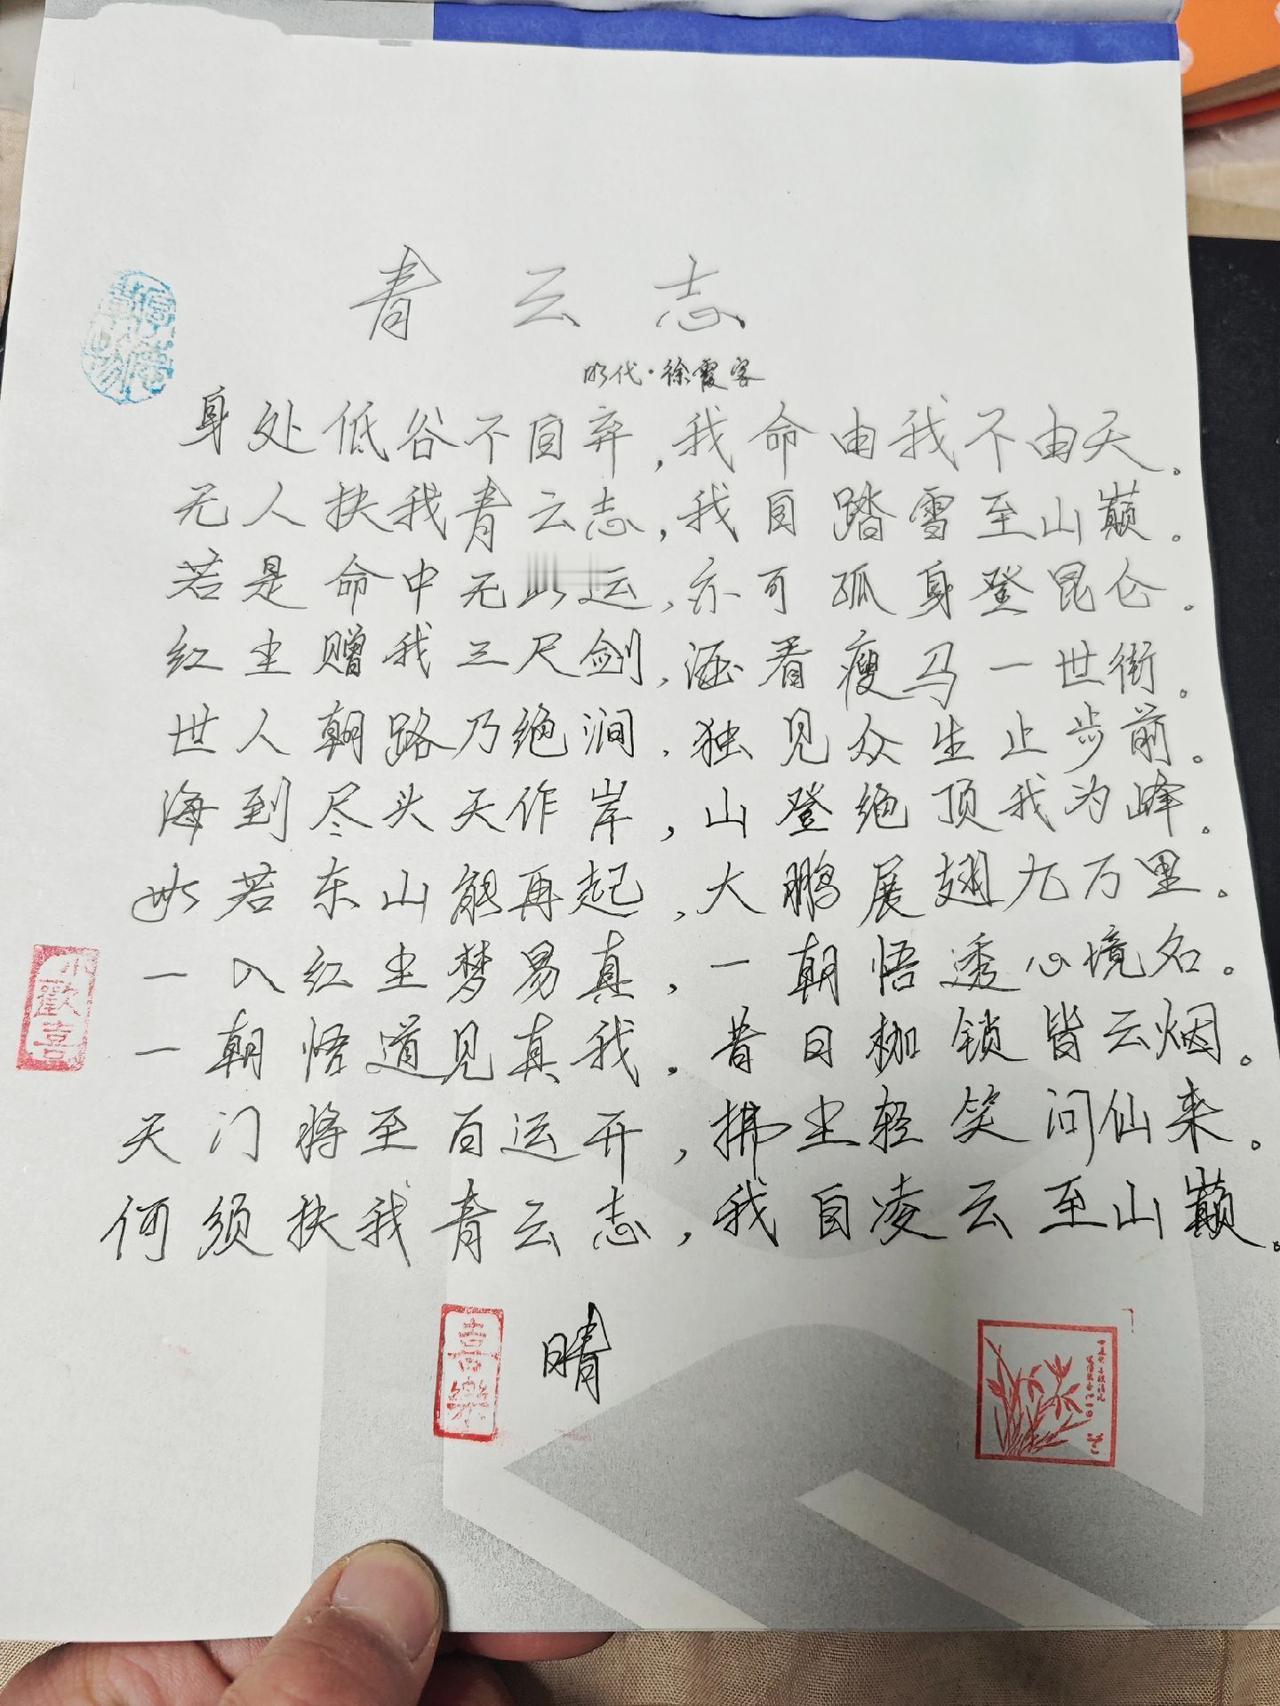 青云志
明代·徐霞客
身处低谷不自弃，我命由我不由天。
无人扶我青云志，我自踏雪至山巅。
若是命中无此运，亦可孤身登昆仑。
红尘赠我三尺剑，酒看瘦马一世街。
世人朝路乃绝涧，独见众生止步前。
海到尽头天作岸，山登绝顶我为峰。
如若东山能再起，大鹏展翅九万里。
一入红尘梦易真，一朝悟透心境名。
一朝悟道见真我，昔日枷锁皆云烟。
天门将至百运开，拂尘轻笑问仙来。
何须扶我青云志，我自凌云至山巅。
小歡喜
喜樂
晴